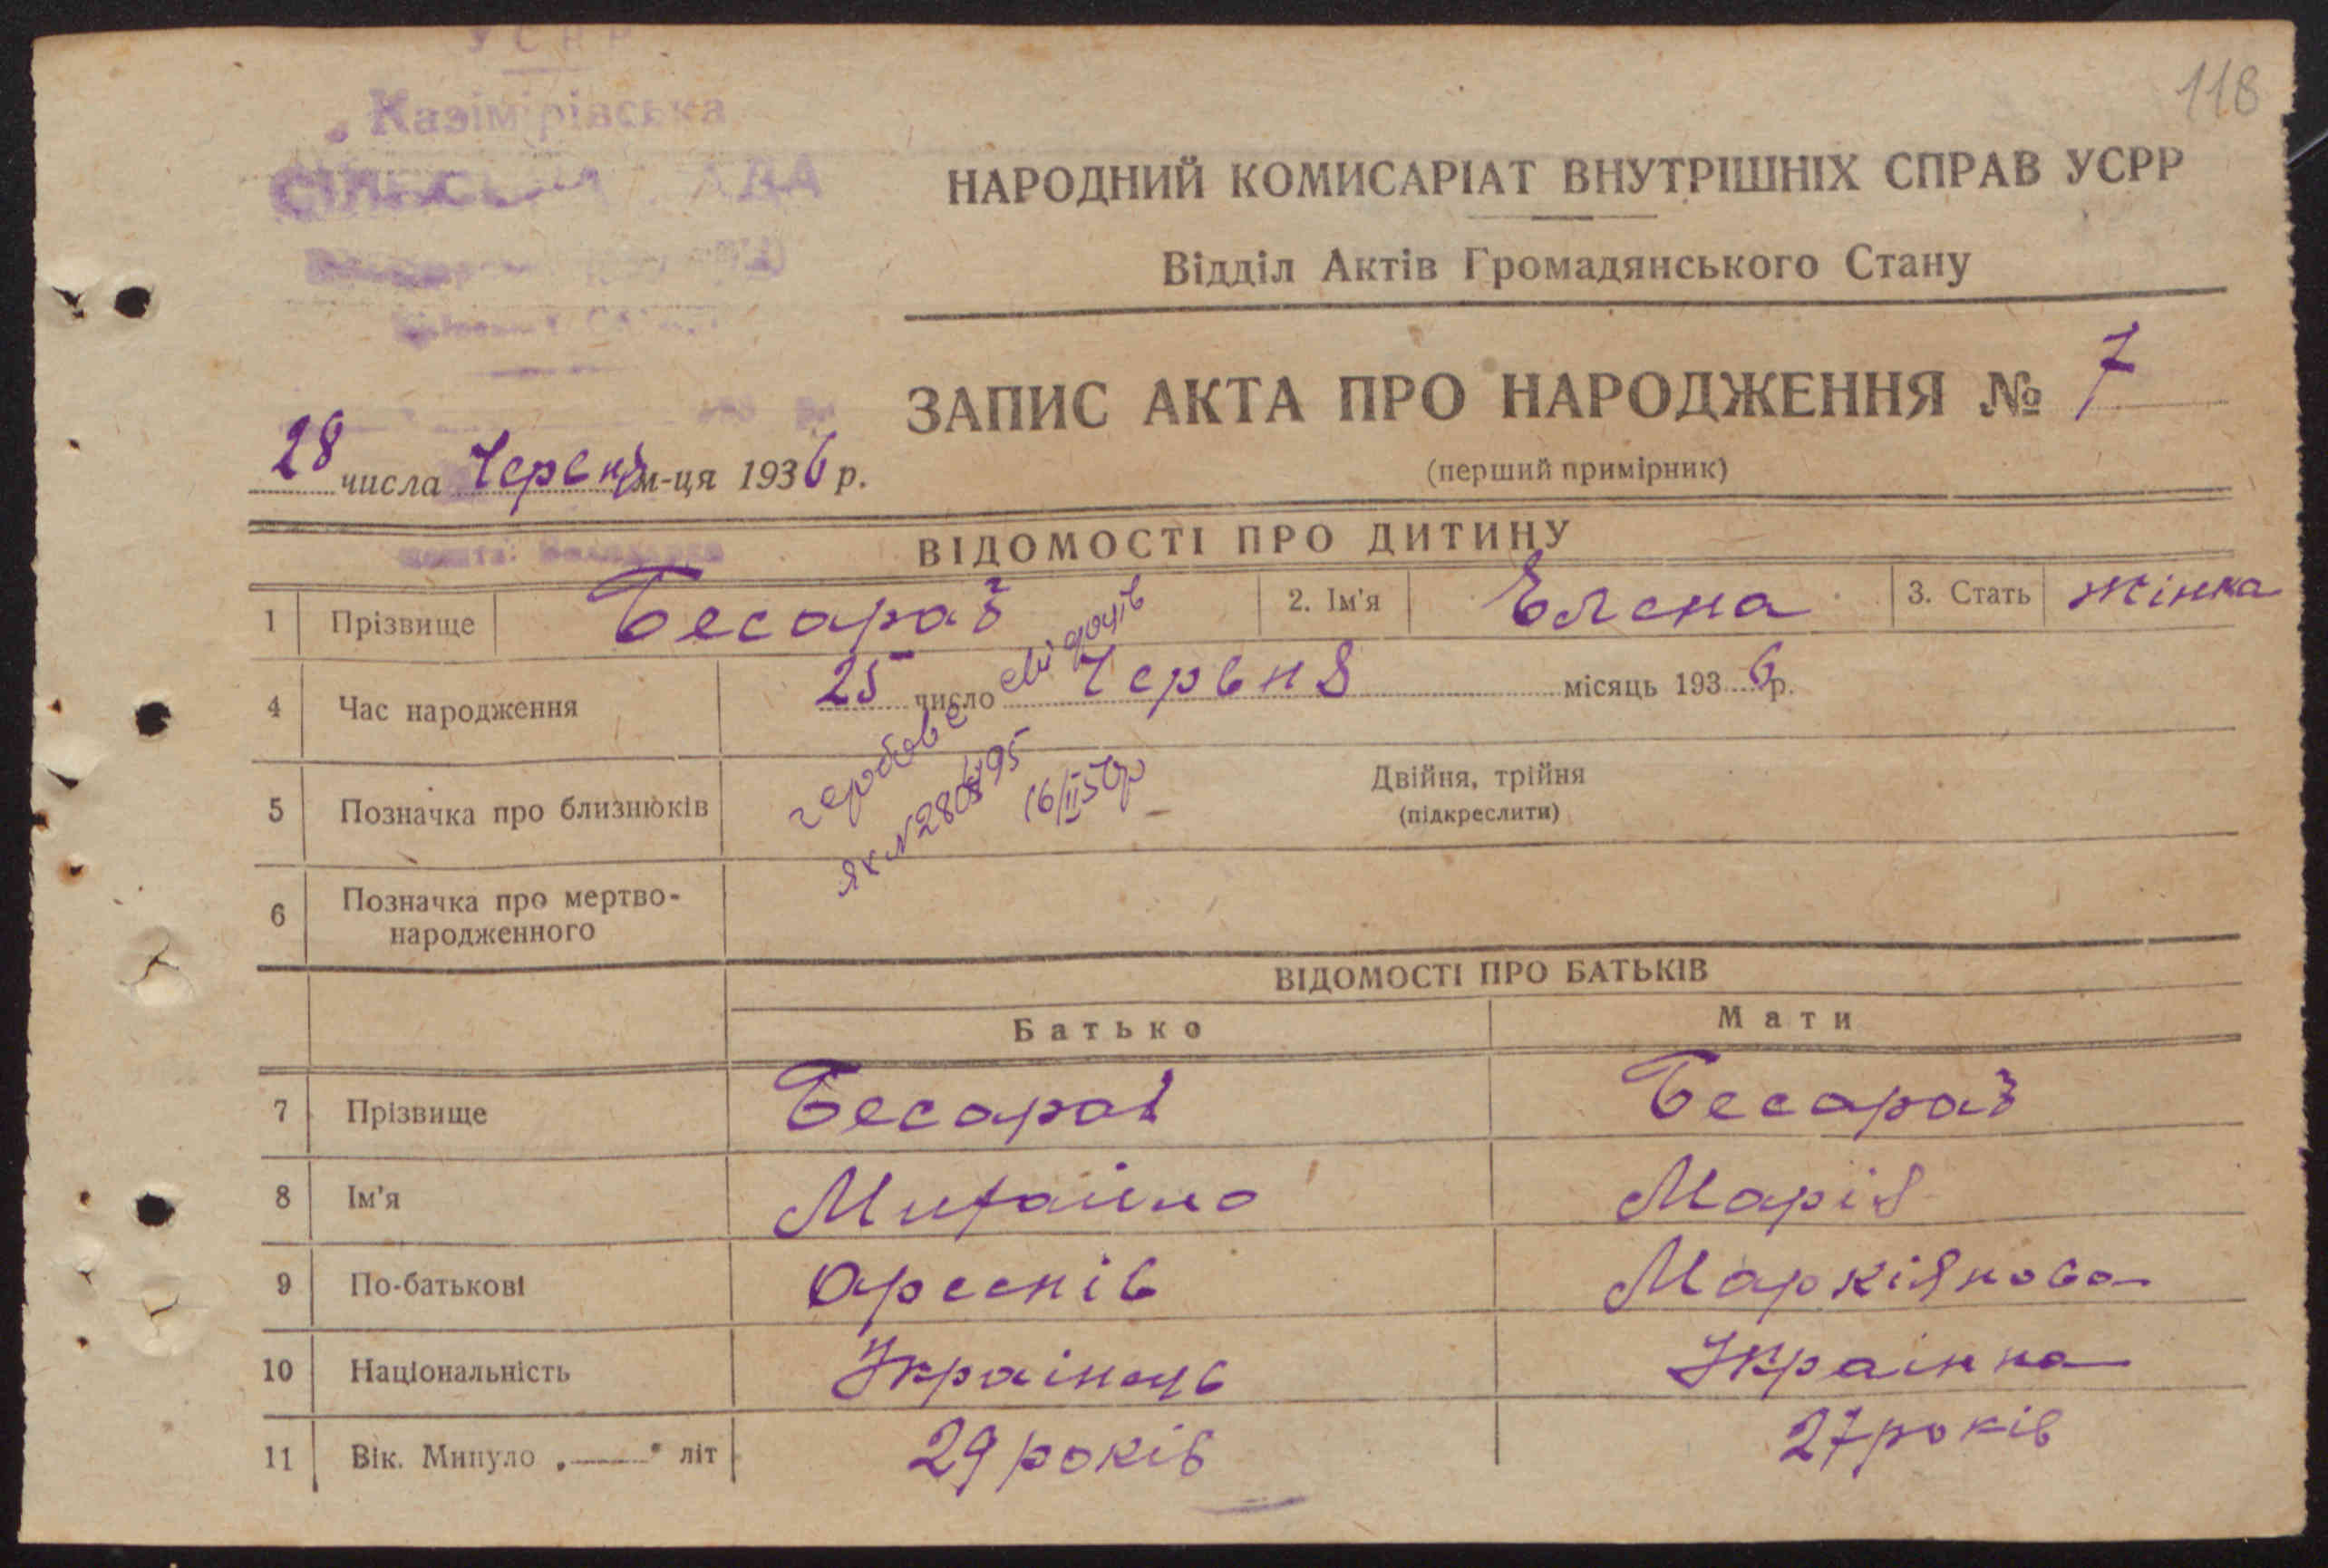 УСРР
Казіміріаська
СІЛЬСЬКА РАДА
118
НАРОДНИЙ КОМИСАРІАТ ВНУТРІШНІХ СПРАВ УСРР
Відділ Актів Громадянського Стану
ЗАПИС АКТА ПРО НАРОДЖЕННЯ № 7
(перший примірник)
28 числа Червня м-ця 1936 р.
ВІДОМОСТІ ПРО ДИТИНУ
1 Прізвище Бесараб 2. Ім'я Елена 3. Стать жінка
4 Час народження 25 число Червня місяць 1936 р.
гербове свідоцтв
ЯК № 2808495
16/II 57р
5 Позначка про близнюків – Двійня, трійня
(підкреслити)
6 Позначка про мертво-
народженного
ВІДОМОСТІ ПРО БАТЬКІВ
Батько Мати
7 Прізвище Бесараб Бесараб
8 Ім'я Михайло Марія
9 По-батькові Арсенів Маркіянова
10 Національність Украінець Украінка
11 Вік. Минуло „——" літ 29 років 27 років